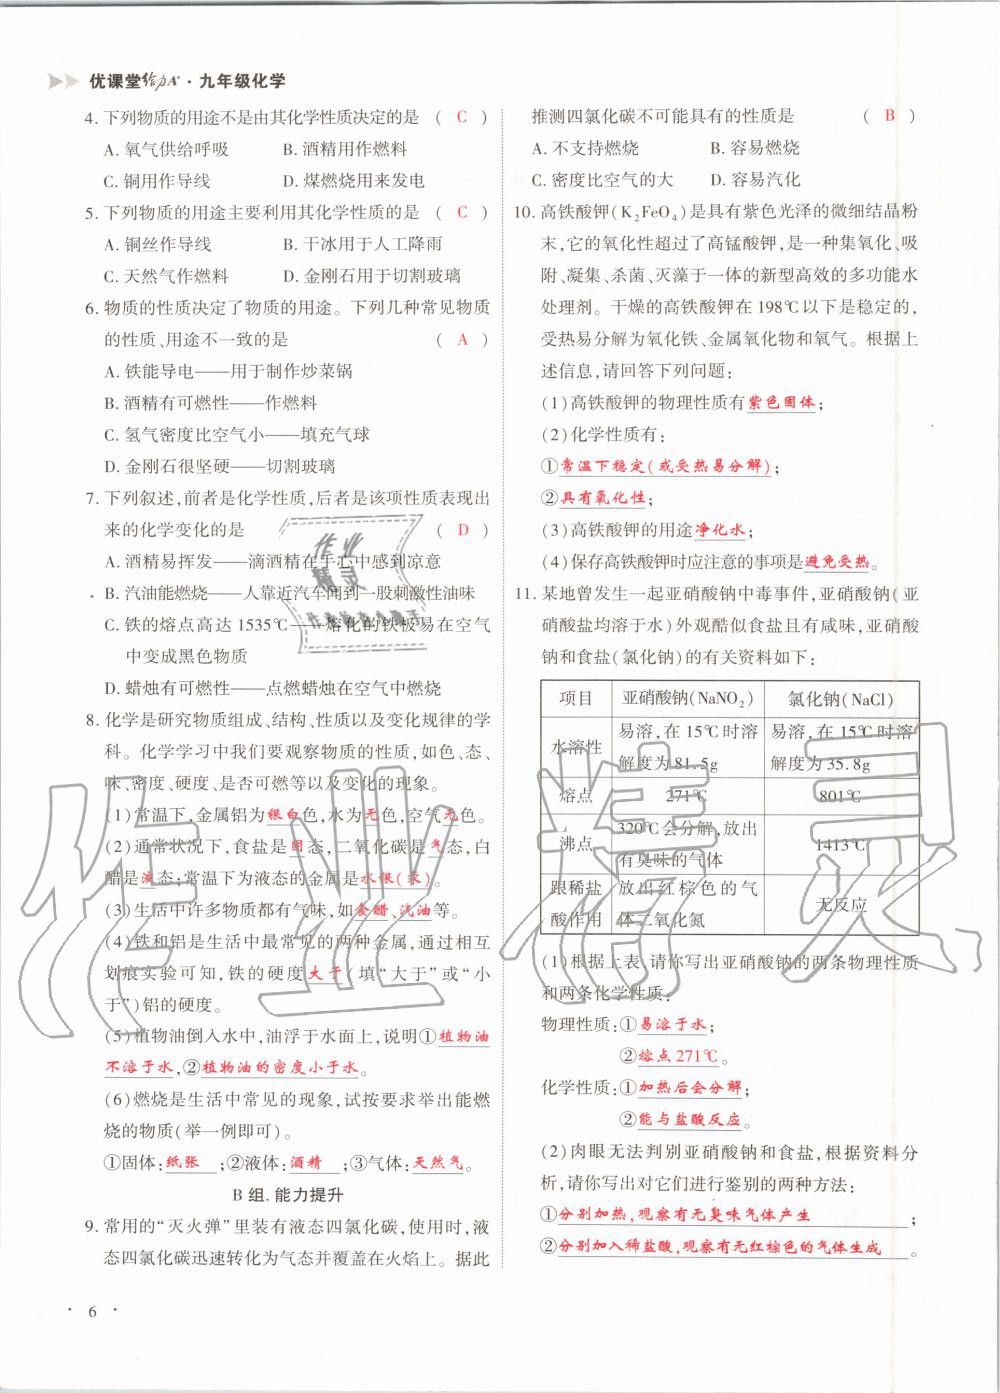 优课堂给力A+·九年级化学
4. 下列物质的用途不是由其化学性质决定的是 ( C )
A. 氧气供给呼吸 B. 酒精用作燃料
C. 铜用作导线 D. 煤燃烧用来发电
5. 下列物质的用途主要利用其化学性质的是 ( C )
A. 铜丝作导线 B. 干冰用于人工降雨
C. 天然气作燃料 D. 金刚石用于切割玻璃
6. 物质的性质决定了物质的用途。下列几种常见物质
的性质、用途不一致的是 ( A )
A. 铁能导电——用于制作炒菜锅
B. 酒精有可燃性——作燃料
C. 氢气密度比空气小——填充气球
D. 金刚石很坚硬——切割玻璃
7. 下列叙述,前者是化学性质,后者是该项性质表现出
来的化学变化的是 ( D )
A. 酒精易挥发——滴酒精在手心中感到凉意
B. 汽油能燃烧——人靠近汽车闻到一股刺激性油味
C. 铁的熔点高达1535℃——熔化的铁极易在空气
中变成黑色物质
D. 蜡烛有可燃性——点燃蜡烛在空气中燃烧
8. 化学是研究物质组成、结构、性质以及变化规律的学
科。化学学习中我们要观察物质的性质,如色、态、
味、密度、硬度、是否可燃等以及变化的现象。
(1)常温下,金属铝为银白色,水为无色,空气无色。
(2)通常状况下,食盐是固态,二氧化碳是气态,白
醋是液态;常温下为液态的金属是水银(汞)。
(3)生活中许多物质都有气味,如食醋、汽油等。
(4)铁和铝是生活中最常见的两种金属,通过相互
划痕实验可知,铁的硬度大于(填“大于”或“小
于”)铝的硬度。
(5)植物油倒入水中,油浮于水面上,说明①植物油
不溶于水,②植物油的密度小于水。
(6)燃烧是生活中常见的现象,试按要求举出能燃
烧的物质(举一例即可)。
①固体:纸张;②液体:酒精;③气体:天然气。
B组.能力提升
9. 常用的“灭火弹”里装有液态四氯化碳,使用时,液
态四氯化碳迅速转化为气态并覆盖在火焰上。据此
推测四氯化碳不可能具有的性质是 ( B )
A. 不支持燃烧 B. 容易燃烧
C. 密度比空气的大 D. 容易汽化
10. 高铁酸钾(K2FeO4)是具有紫色光泽的微细结晶粉
末,它的氧化性超过了高锰酸钾,是一种集氧化、吸
附、凝集、杀菌、灭藻于一体的新型高效的多功能水
处理剂。干燥的高铁酸钾在198℃以下是稳定的,
受热易分解为氧化铁、金属氧化物和氧气。根据上
述信息,请回答下列问题:
(1)高铁酸钾的物理性质有紫色固体;
(2)化学性质有:
①常温下稳定(或受热易分解);
②具有氧化性;
(3)高铁酸钾的用途净化水;
(4)保存高铁酸钾时应注意的事项是避免受热。
11. 某地曾发生一起亚硝酸钠中毒事件,亚硝酸钠(亚
硝酸盐均溶于水)外观酷似食盐且有咸味,亚硝酸
钠和食盐(氯化钠)的有关资料如下:
项目 亚硝酸钠(NaNO2) 氯化钠(NaCl)
水溶性 易溶,在15℃时溶解度为81.5g 易溶,在15℃时溶解度为35.8g
熔点 271℃ 801℃
沸点 320℃会分解,放出有臭味的气体 1413℃
跟稀盐酸作用 放出红棕色的气体二氧化氮 无反应
(1)根据上表,请你写出亚硝酸钠的两条物理性质
和两条化学性质:
物理性质:①易溶于水;
②熔点271℃。
化学性质:①加热后会分解;
②能与盐酸反应。
(2)肉眼无法判别亚硝酸钠和食盐,根据资料分
析,请你写出对它们进行鉴别的两种方法:
①分别加热,观察有无臭味气体产生;
②分别加入稀盐酸,观察有无红棕色的气体生成。
· 6 ·
作业精灵
作业
精灵